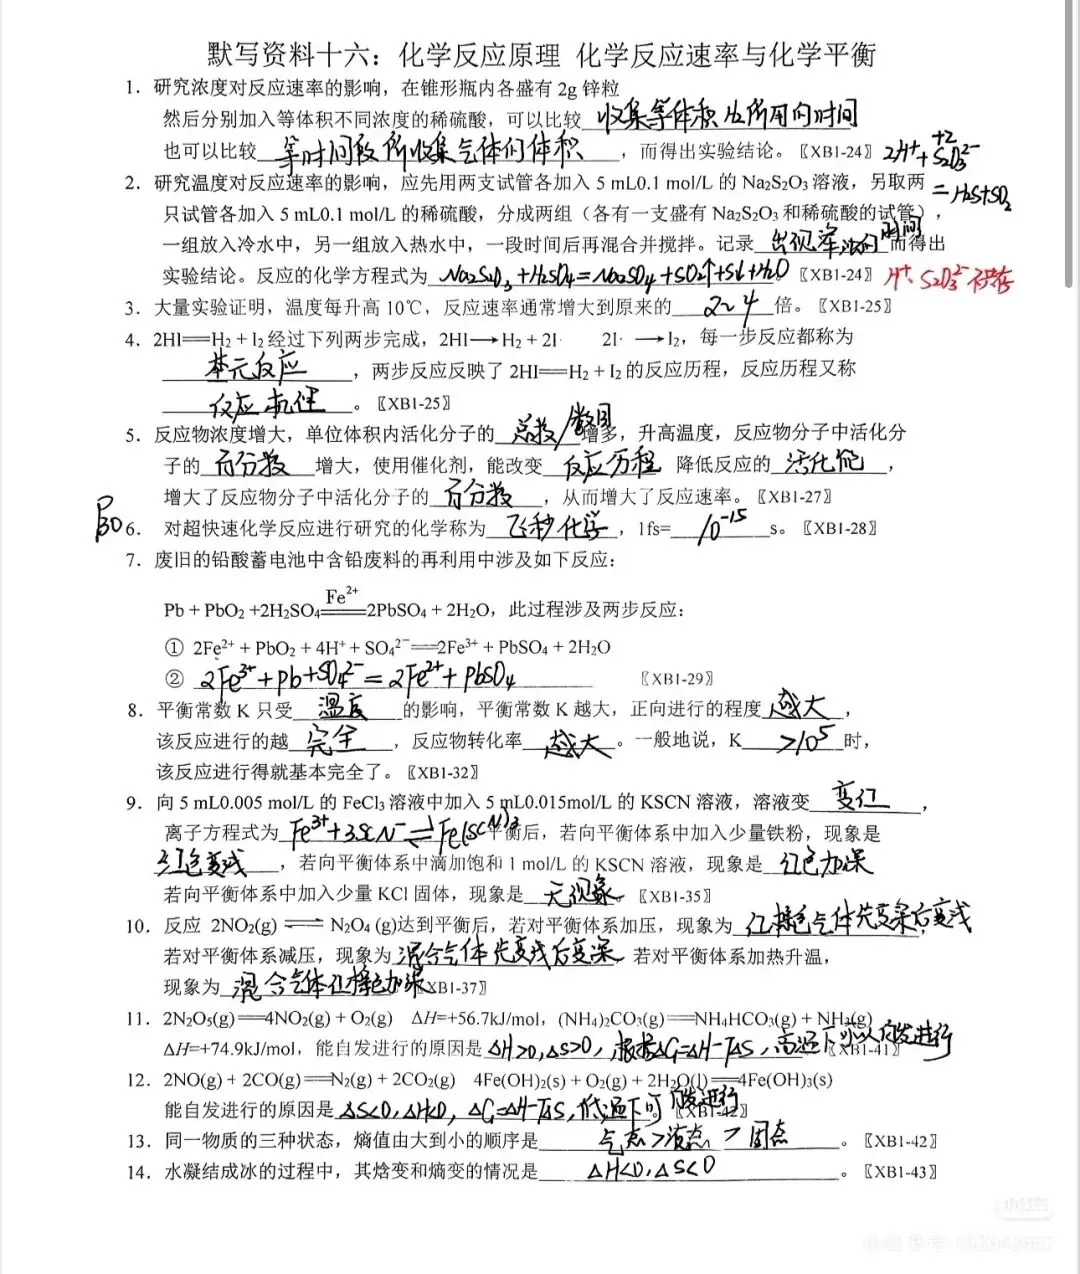 默写资料十六：化学反应原理 化学反应速率与化学平衡
1．研究浓度对反应速率的影响，在锥形瓶内各盛有 2g 锌粒
然后分别加入等体积不同浓度的稀硫酸，可以比较 收集等体积H₂所用的时间
也可以比较 等时间段所收集气体的体积 ，而得出实验结论。〖XB1-24〗 2H⁺+S₂O₃²⁻ +2
2．研究温度对反应速率的影响，应先用两支试管各加入 5 mL0.1 mol/L 的 Na₂S₂O₃ 溶液，另取两 =H₂S+SO₂
只试管各加入 5 mL0.1 mol/L 的稀硫酸，分成两组（各有一支盛有 Na₂S₂O₃ 和稀硫酸的试管），
一组放入冷水中，另一组放入热水中，一段时间后再混合并搅拌。记录 出现浑浊的时间 而得出
实验结论。反应的化学方程式为 Na₂S₂O₃+H₂SO₄=Na₂SO₄+SO₂↑+S↓+H₂O 〖XB1-24〗 H⁺、S₂O₃²⁻不共存
3．大量实验证明，温度每升高 10℃，反应速率通常增大到原来的 2~4 倍。〖XB1-25〗
4．2HI══H₂ + I₂ 经过下列两步完成，2HI→H₂ + 2I· 2I· →I₂，每一步反应都称为
基元反应 ，两步反应反映了 2HI══H₂ + I₂ 的反应历程，反应历程又称
反应机理 。〖XB1-25〗
5．反应物浓度增大，单位体积内活化分子的 总数/数目 增多，升高温度，反应物分子中活化分
子的 百分数 增大，使用催化剂，能改变 反应历程 降低反应的 活化能 ，
增大了反应物分子中活化分子的 百分数 ，从而增大了反应速率。〖XB1-27〗
P30 6． 对超快速化学反应进行研究的化学称为 飞秒化学 ，1fs= 10⁻¹⁵ s。〖XB1-28〗
7．废旧的铅酸蓄电池中含铅废料的再利用中涉及如下反应：
Fe²⁺
Pb + PbO₂ +2H₂SO₄══2PbSO₄ + 2H₂O，此过程涉及两步反应：
① 2Fe²⁺ + PbO₂ + 4H⁺ + SO₄²⁻══2Fe³⁺ + PbSO₄ + 2H₂O
② 2Fe³⁺+Pb+SO₄²⁻=2Fe²⁺+PbSO₄ 〖XB1-29〗
8．平衡常数 K 只受 温度 的影响，平衡常数 K 越大，正向进行的程度 越大 ，
该反应进行的越 完全 ，反应物转化率 越大 。一般地说，K >10⁵ 时，
该反应进行得就基本完全了。〖XB1-32〗
9．向 5 mL0.005 mol/L 的 FeCl₃ 溶液中加入 5 mL0.015mol/L 的 KSCN 溶液，溶液变 变红 ，
离子方程式为 Fe³⁺+3SCN⁻⇌Fe(SCN)₃ 平衡后，若向平衡体系中加入少量铁粉，现象是
红色变浅 ，若向平衡体系中滴加饱和 1 mol/L 的 KSCN 溶液，现象是 红色加深
若向平衡体系中加入少量 KCl 固体，现象是 无现象 〖XB1-35〗
10．反应 2NO₂(g) ⇌ N₂O₄ (g)达到平衡后，若对平衡体系加压，现象为 红棕色气体先变深后变浅
若对平衡体系减压，现象为 混合气体先变浅后变深 若对平衡体系加热升温，
现象为 混合气体红棕色加深 〖XB1-37〗
11．2N₂O₅(g)══4NO₂(g) + O₂(g) ΔH=+56.7kJ/mol，(NH₄)₂CO₃(g)══NH₄HCO₃(g) + NH₃(g)
ΔH=+74.9kJ/mol，能自发进行的原因是 ΔH>0,ΔS>0，根据ΔG=ΔH-TΔS，高温下可以自发进行 〖XB1-41〗
12．2NO(g) + 2CO(g)══N₂(g) + 2CO₂(g) 4Fe(OH)₂(s) + O₂(g) + 2H₂O(l)══4Fe(OH)₃(s)
能自发进行的原因是 ΔS<0,ΔH<0，ΔG=ΔH-TΔS,低温下可自发进行 。〖XB1-42〗
13．同一物质的三种状态，熵值由大到小的顺序是 气态>液态>固态 。〖XB1-42〗
14．水凝结成冰的过程中，其焓变和熵变的情况是 ΔH<0,ΔS<0 。〖XB1-43〗
小红书